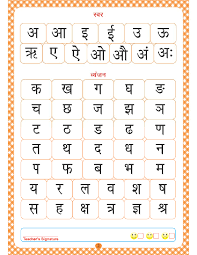 स्वर
अ आ इ ई उ ऊ
ऋ ए ऐ ओ औ अं अः
व्यंजन
क ख ग घ ङ
च छ ज झ ञ
ट ठ ड ढ ण
त थ द ध न
प फ ब भ म
य र ल व श ष
स ह क्ष त्र ज्ञ
Teacher's Signature